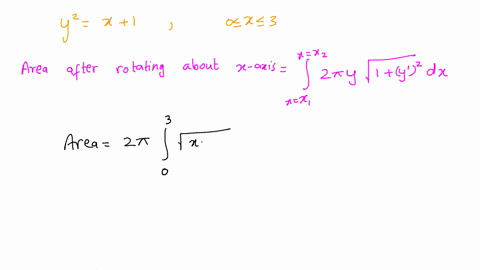 y² = x + 1 , 0 ≤ x ≤ 3
Area after rotating about x-axis = ∫_{x=x₁}^{x=x₂} 2πy √(1+(y')²) dx
Area = 2π ∫_0^3 √x